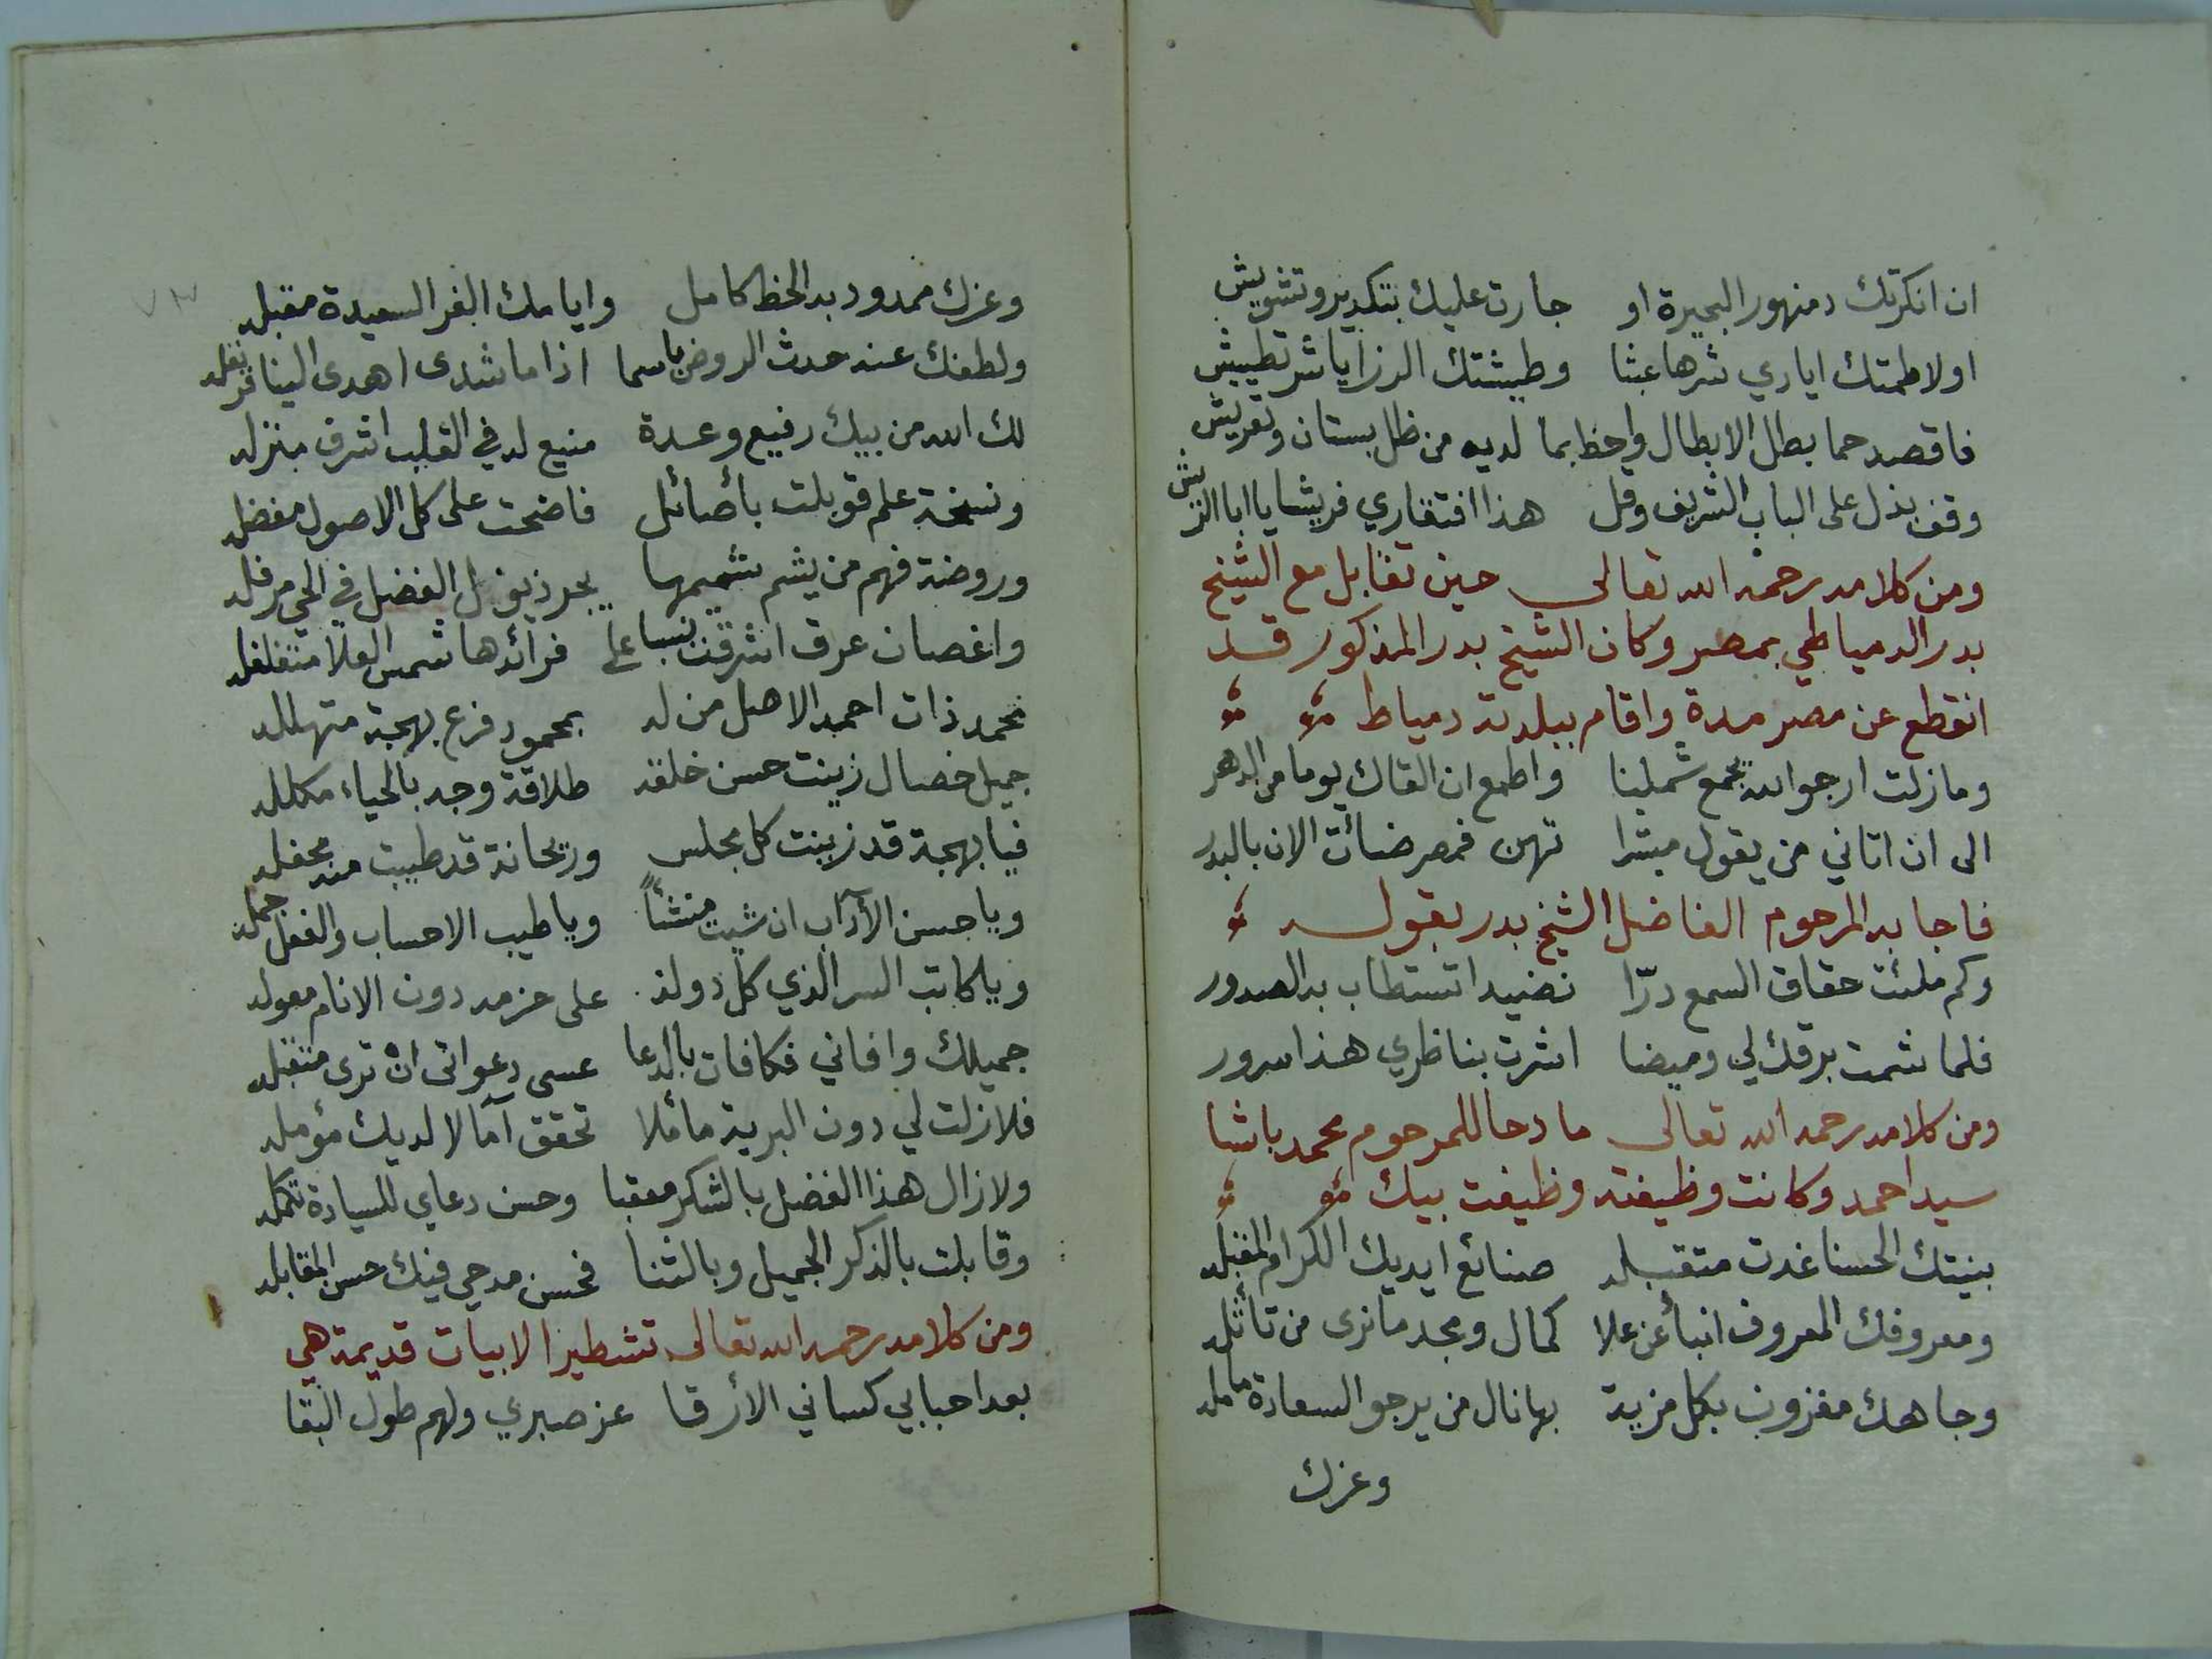 ان انكرتك دمنهور البحيرة او جارت عليك بتكدير وتشويش
او لاطمتك ايادي شرها عبثا وطيشتك الرزايا شر تطييش
فاقصد حما بطل الابطال واحظ بما لديه من ظل بستان وتعريش
وقف بذل على الباب الشريف وقل هذا افتقاري فريشا يا ابا الريش
ومن كلامه رحمه الله تعالى حين تقابل مع الشيخ
بدر الدمياطي بمصر وكان الشيخ بدر المذكور قد
انقطع عن مصر مدة واقام ببلدته دمياط
وما زلت ارجو الله يجمع شملنا واطمع ان القاك يوما من الدهر
الى ان اتاني من يقول مبشرا تهن فمصر ضائت الان بالبدر
فاجابه المرحوم الفاضل الشيخ بدر بقوله
وكم ملئت حقاق السمع درّا نضيدا تستطاب به الصدور
فلما شمت برقك لي وميضا اشرت بناظري هذا سرور
ومن كلامه رحمه الله تعالى مادحا للمرحوم محمد باشا
سيد احمد وكانت وظيفته وظيفت بيك
بنيتك الحسنا غدت متقبله صنائع ايديك الكرام المقبله
ومعروفك المعروف انبأ عن علا كمال ومجد ما نرى من تأثله
وجاهك مقرون بكل مزية بها نال من يرجو السعادة مامله
وعزك
وعزك ممدود به الحظ كامل وايامك الغر السعيدة مقبله
ولطفك عنه حدث الروض باسما اذا ما شدى اهدى الينا قرنفله
لك الله من بيك رفيع وعدة منيع له في القلب اشرف منزله
ونسخة علم قوبلت بأصائل فاضحت على كل الاصول مفضله
وروضة فهم من يشم شميمها يجر ذيول الفضل في الحي مرفله
واغصان عرق اشرقت نسبا على فرائدها شمس العلا متغلغله
محمد ذات احمد الاصل من له بمحمود فرع بهجة متهلله
جميل خصال زينت حسن خلقه طلاقة وجه بالحياء مكلله
فيا بهجة قد زينت كل مجلس وريحانة قد طيبت منه محفله
ويا حسن الآداب ان شيت منشئاً ويا طيب الاحساب والفضل جمله
ويا كاتب السر الذي كل دولة على حزمه دون الانام معوله
جميلك وافاني فكافات بالدعا عسى دعواتى ان ترى متقبله
فلا زلت لي دون البرية مائلا تحقق آمالا لديك مؤمله
ولا زال هذا الفضل بالشكر معقبا وحسن دعاي للسيادة تكمله
وقابلت بالذكر الجميل وبالثنا فحسن مدحي فيك حسن المقابله
ومن كلامه رحمه الله تعالى تشطيرا لابيات قديمة هي
بعد احبابي كساني الأرقا عز صبري ولهم طول البقا